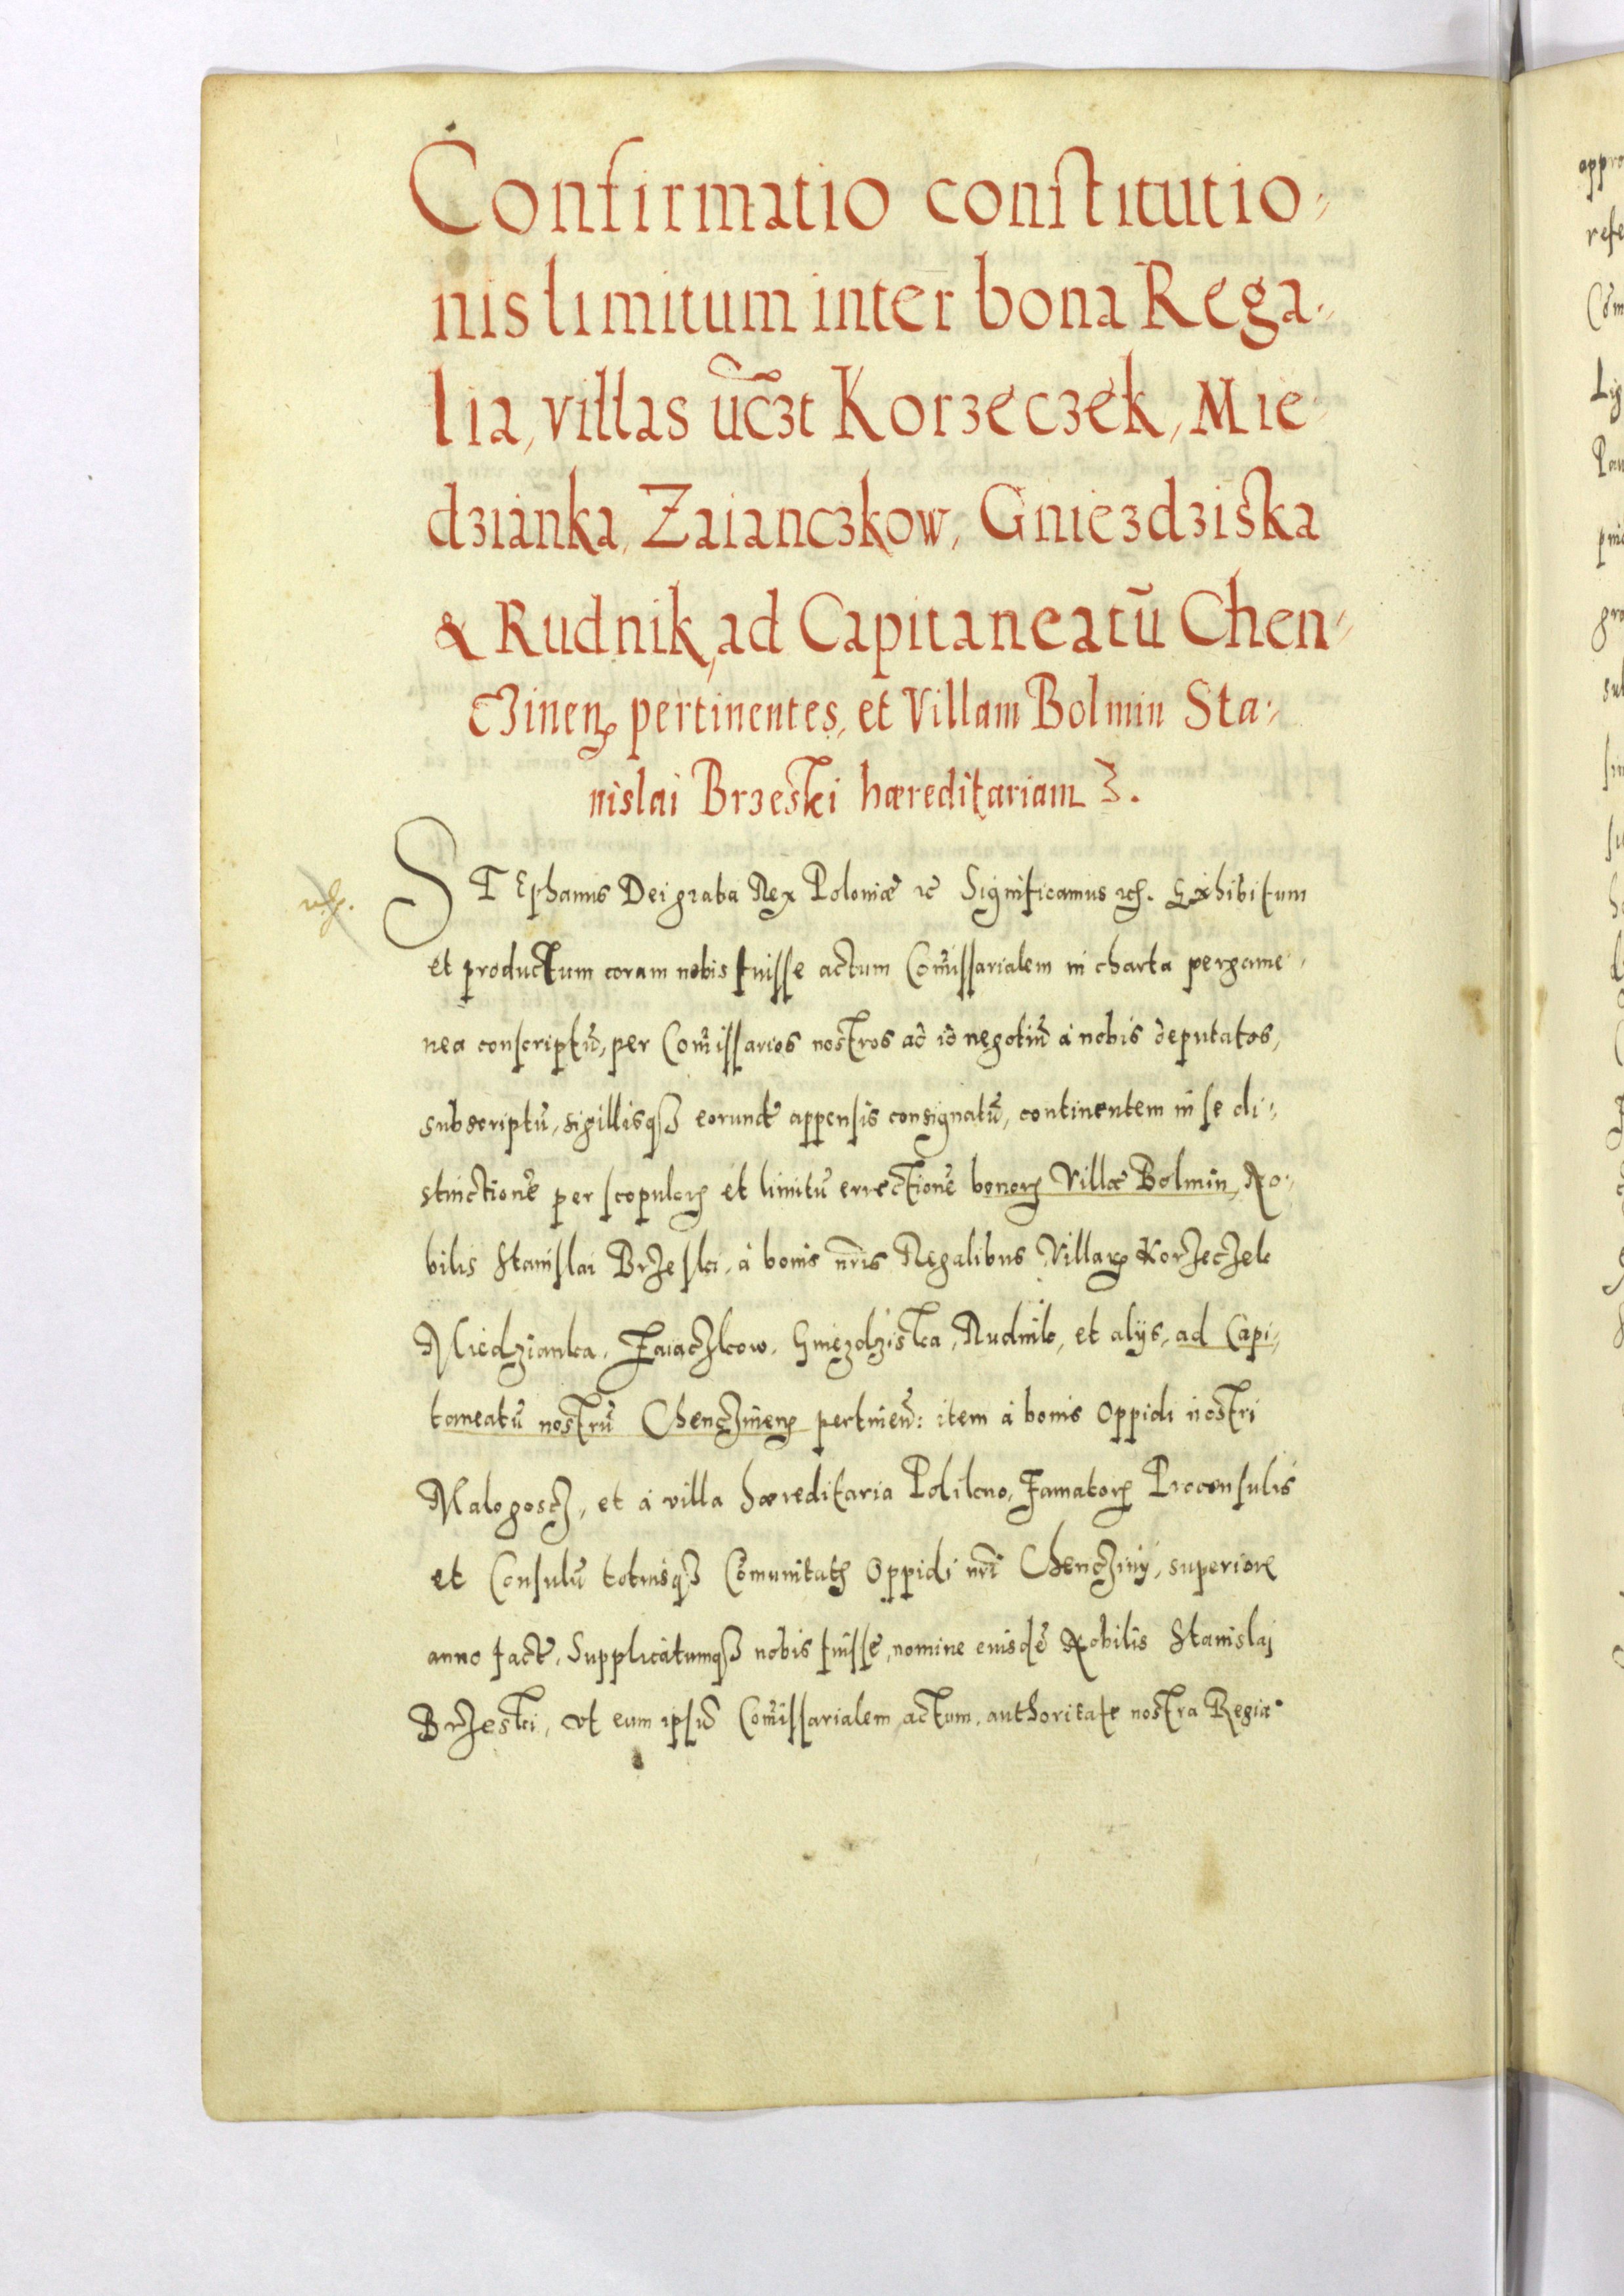 Confirmatio constitutio-
nis limitum inter bona Rega-
lia, villas vczt Korzeczek, Mie
dzianka, Zaianczkow, Gniezdziska
& Rudnik, ad Capitaneatū Chen-
czinen pertinentes, et Villam Bolmin Sta-
nislai Brzeski hæreditariam
STEphanus Dei gratia Rex Poloniæ Significamus Exhibitum
et productum coram nobis fuisse actum Com̄issarialem in charta pergame-
nea conscriptū, per Com̄issarios nostros ad id negotiū à nobis deputatos,
subscriptū, sigillisq3 eorund appensis consignatū, continentem in se di-
stinctionē per scopulor et limitū errectionē bonor Villæ Bolmin, No-
bilis Stanislai Brzeski, à bonis nr̄is Regalibus Villar Korzeczek
Miedzianka, Zaiaczkow, Gniezdziska, Rudnik, et alijs, ad Capi-
taneatū nostrū Chenczinen pertinen: item à bonis Oppidi nostri
Malogoscz, et à villa hæreditaria Polikno, Famator Proconsulis
et Consulū totiusq3 Com̄unitat Oppidi nr̄i Chencziny, superior
anno fact, Supplicatumq3 nobis fuisse, nomine eiusdē Nobilis Stanislai
Brzeski, vt eum ipsū Com̄issarialem actum, authoritate nostra Regia